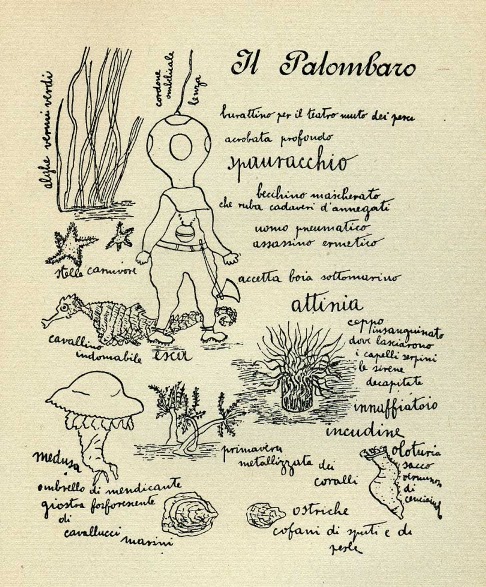 Il Palombaro
alghe vermi verdi
cordone ombelicale
lenza
burattino per il teatro muto dei pesci
acrobata profondo
spauracchio
becchino mascherato
che ruba cadaveri d'annegati
uomo pneumatico
assassino ermetico
stelle carnivore
accetta boia sottomarino
attinia
ceppo
insanguinato
dove lasciarono
i capelli serpini
le sirene
decapitate
cavallino
indomabile
esca
innaffiatoio
incudine
medusa
primavera
metallizzata dei
coralli
oloturia
sacco
di
ombrello di mendicante
giostra fosforescente
di
cavallucci
marini
ostriche
cofani di sputi e di
perle